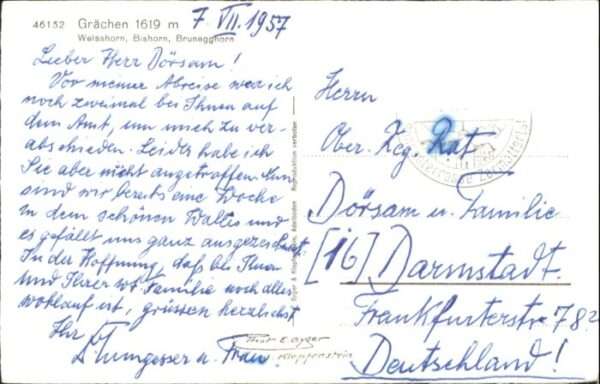 46152 Grächen 1619 m
Weisshorn, Bishorn, Brunegghorn
7 VII. 1957
Lieber Herr Dörsam!
Vor meiner Abreise war ich
noch zweimal bei Ihnen auf
dem Amt, um mich zu ver-
abschieden. Leider habe ich
Sie aber nicht angetroffen. Nun
sind wir bereits eine Woche
in dem schönen Wallis und
es gefällt uns ganz ausgezeichnet.
In der Hoffnung, daß bei Ihnen
und Ihrer w. Familie noch alles
wohlauf ist, grüssen herzlichst
Ihr
u. Frau
Klopfenstein
Reproduktion verboten
Herrn
Ober. Reg. Rat
Dörsam u. Familie
[16] Darmstadt.
Frankfurterstr. 78
Deutschland!